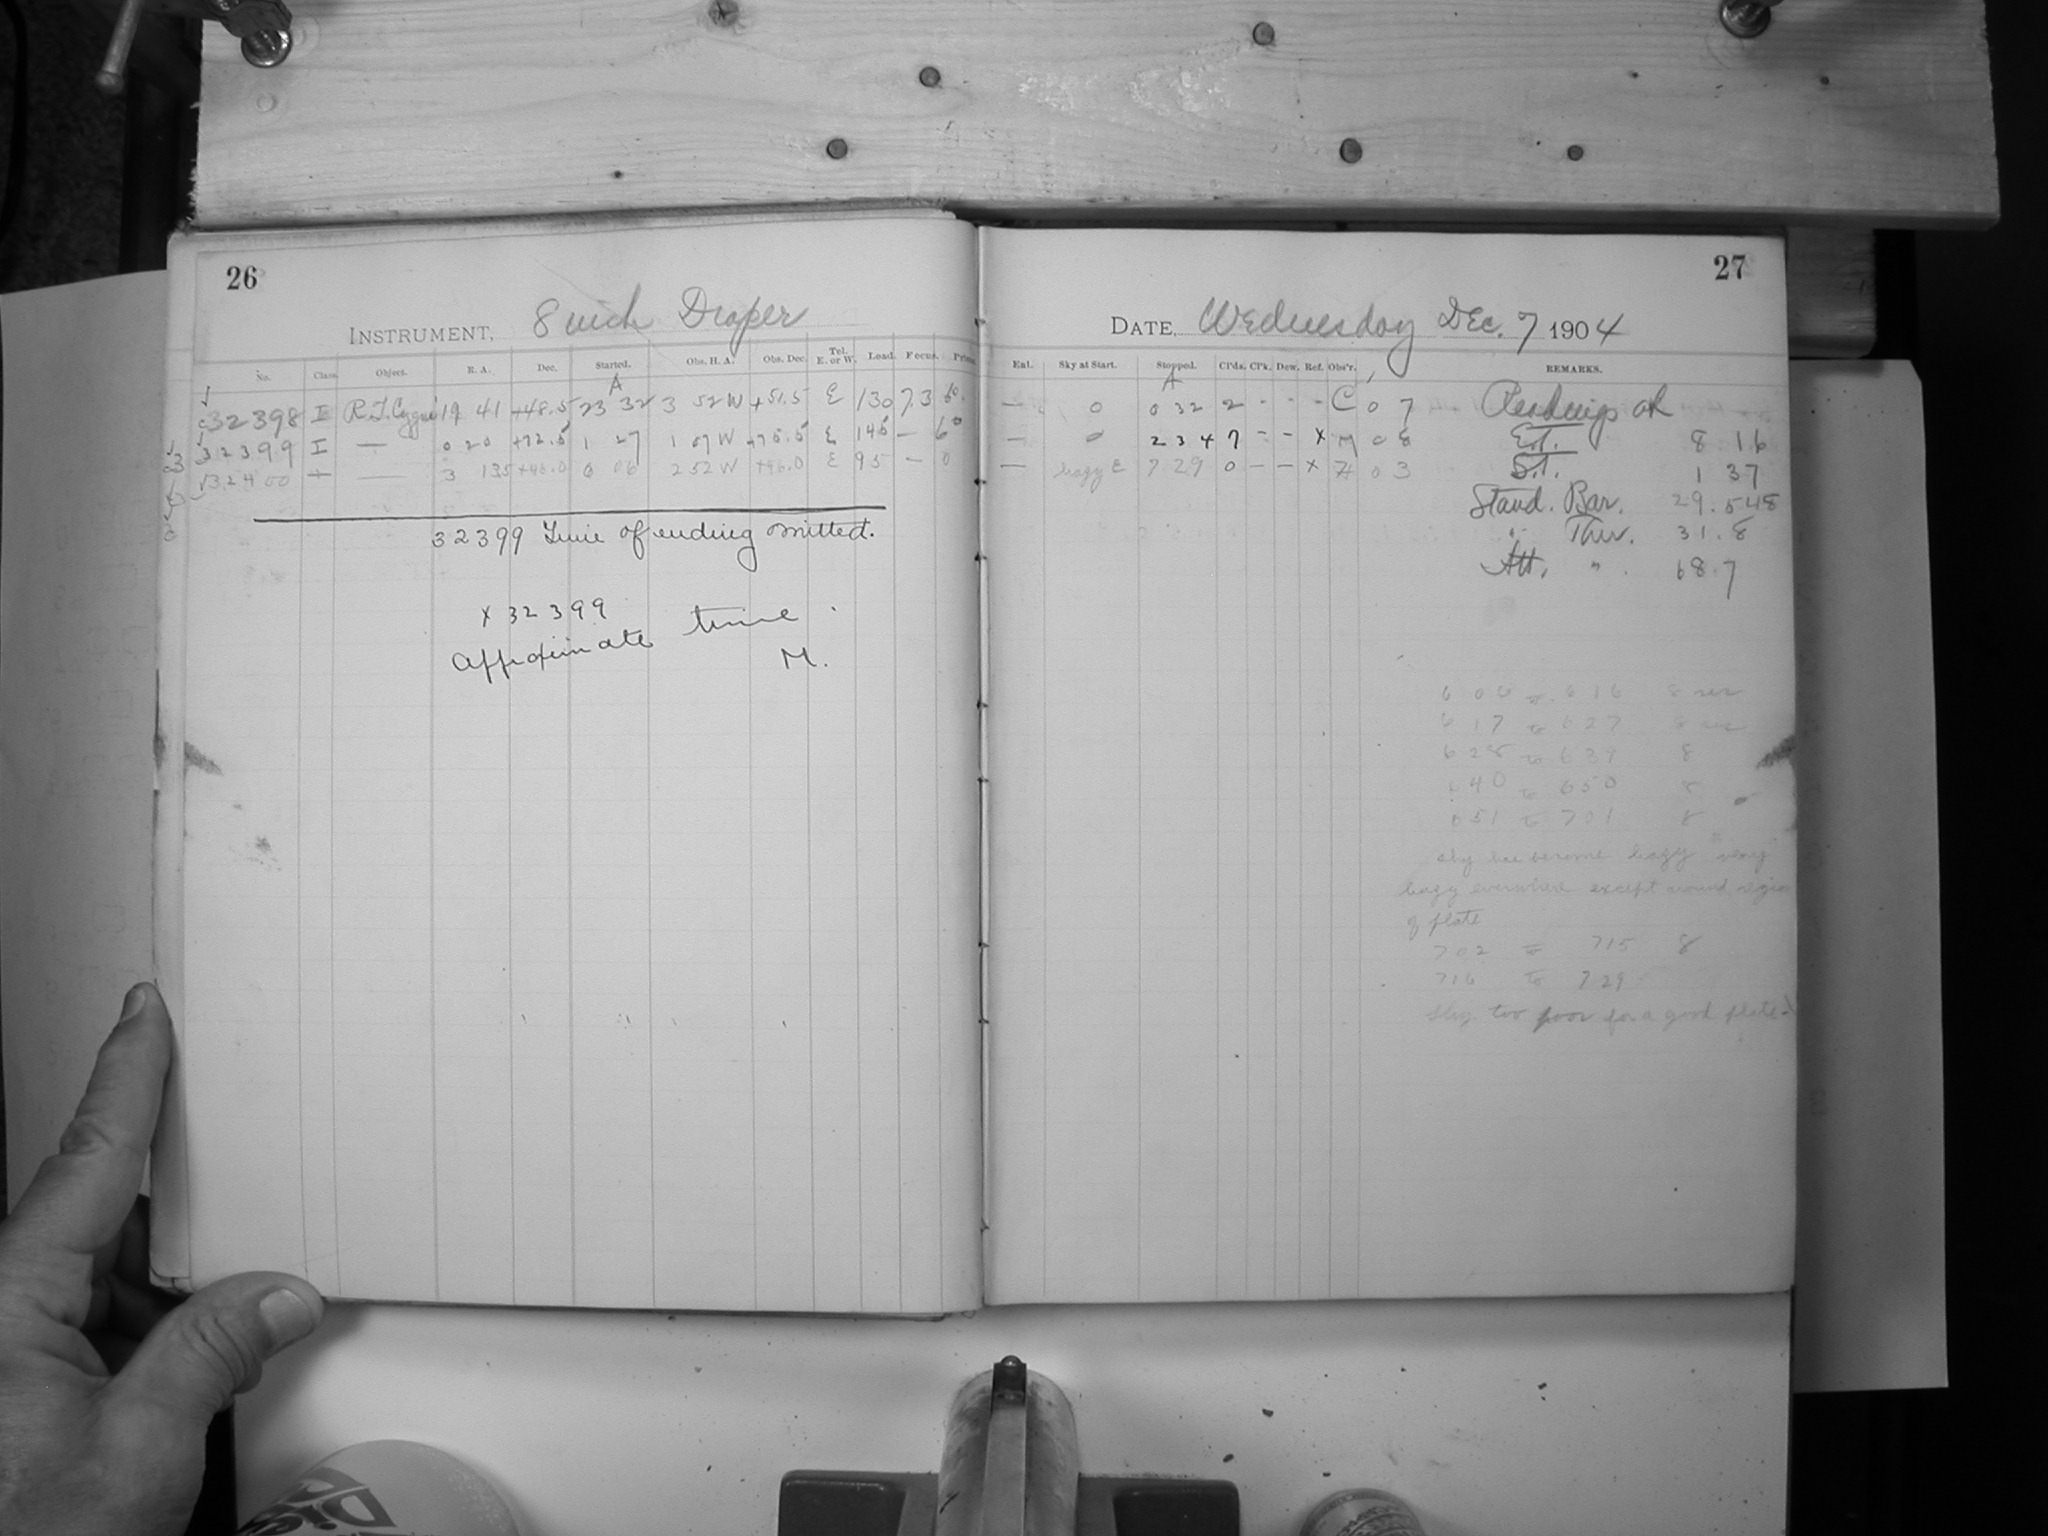 26
INSTRUMENT, 8 inch Draper
No. Class. Object. R. A. Dec. Started. Obs. H. A. Obs. Dec. Tel. E. or W. Load. Focus. Prism
A
32398 I R.T.Cygni 19 41 +48.5 23 32 3 52 W +51.5 E 130 7.3 60.
32399 I — 0 20 +72.5 1 27 1 07 W +75.5 E 145 — 60
32400 I — 3 13.5 +46.0 6 06 2 52 W +46.0 E 95 — 0
32399 Time of ending omitted.
x 32399
Approximate time.
M.
27
DATE, Wednesday Dec. 7 1904
Enl. Sky at Start. Stopped. Cl'ds. Cl'k. Dew. Ref. Obs'r. REMARKS.
A
— 0 0 32 2 - - - C 0 7 Readings at
— 0 2 34 7 - - x M 0 8 E.T. 8 16
— hazy E 7 29 0 — — x 0 3 S.T. 1 37
Stand. Bar. 29.548
" Ther. 31.8
Att. " 68.7
6 06 to 6 16 8 sec
6 17 to 6 27 8 sec
6 28 to 6 39 8
6 40 to 6 50 8
6 51 to 7 01 8
sky has become hazy very
hazy everywhere except around region
of plate
7 02 to 7 15 8
7 16 to 7 29
Sky too poor for a good plate.